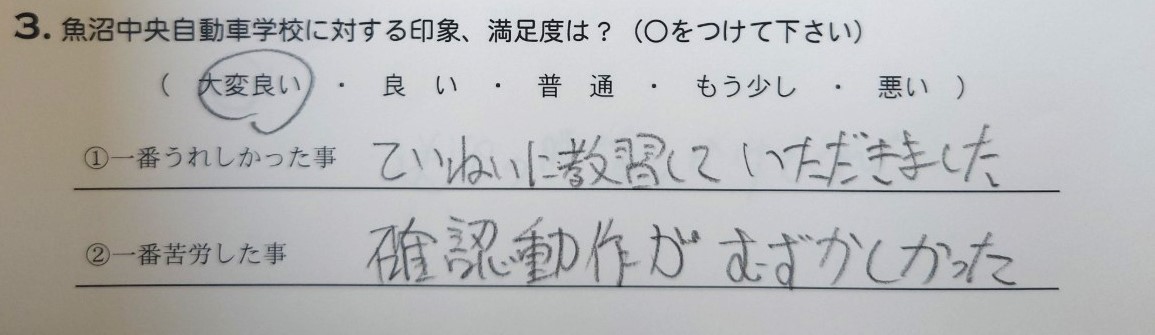 3. 魚沼中央自動車学校に対する印象、満足度は？（〇をつけて下さい）
（ 大変良い ・ 良 い ・ 普 通 ・ もう少し ・ 悪い ）
①一番うれしかった事 ていねいに教習していただきました
②一番苦労した事 確認動作が むずかしかった